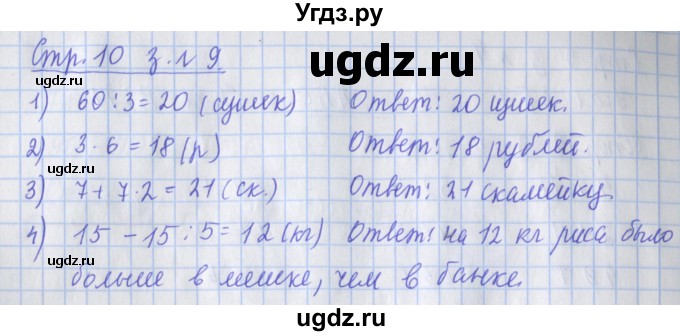 Угдз.ру
Стр. 10 з. № 9
ugdz.ru
1) 60 : 3 = 20 (сушек) Ответ: 20 щшек.
2) 3 · 6 = 18 (р) Ответ: 18 рублей.
ugdz.ru
3) 7 + 7 · 2 = 21 (ск.) Ответ: 21 скамейку.
ugdz.ru
4) 15 – 15 : 5 = 12 (кг) Ответ: на 12 кг риса было
ugdz.ru
больше в мешке, чем в банке.
Угдз.ру